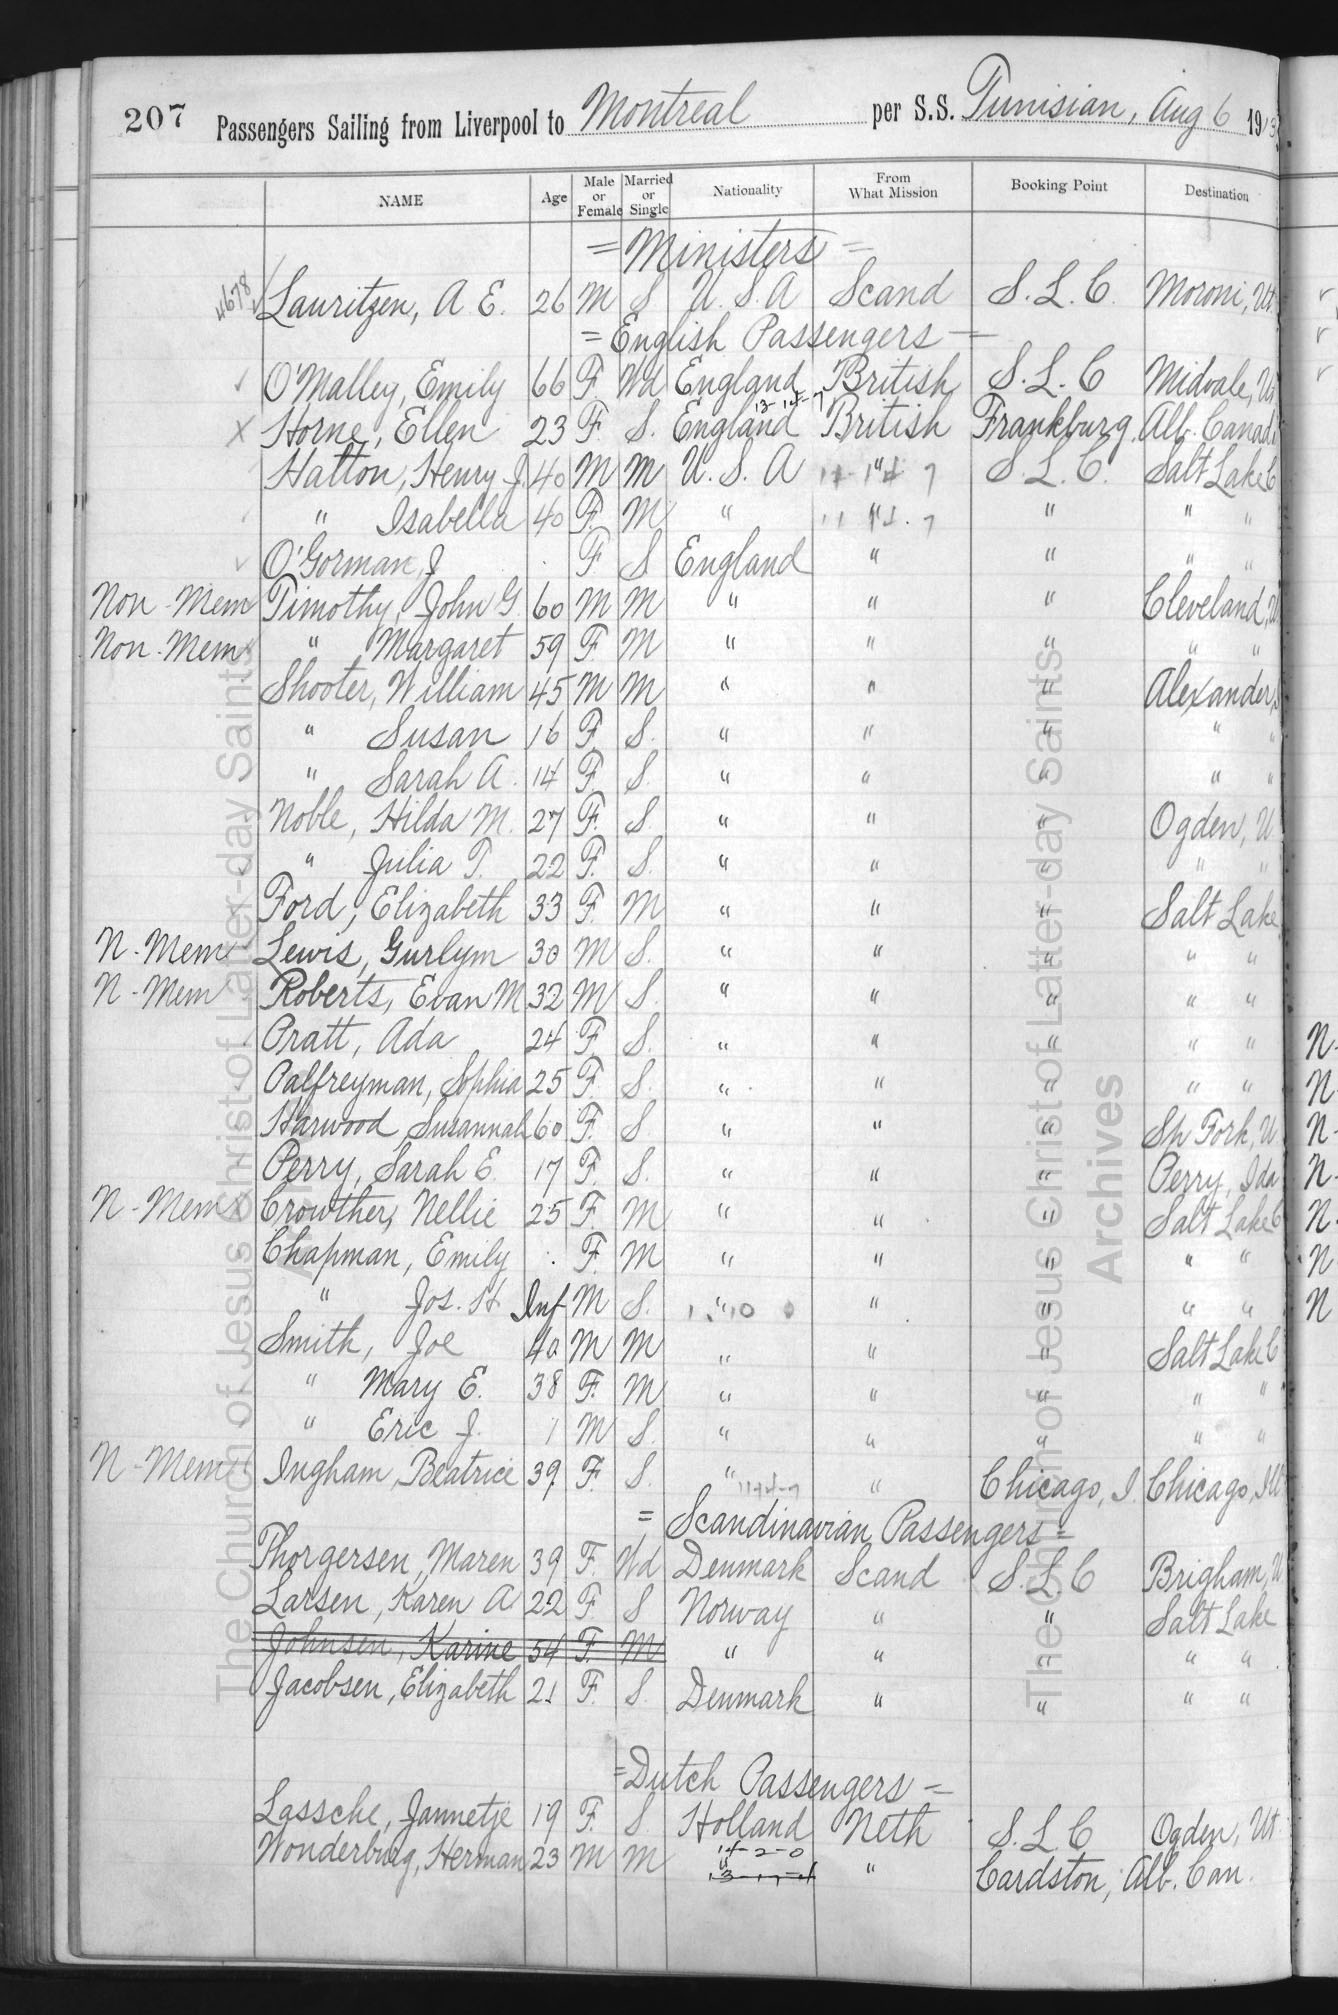 207 Passengers Sailing from Liverpool to Montreal per S.S. Tunisian, Aug 6 1913
NAME Age Male or Female Married or Single Nationality From What Mission Booking Point Destination
= Ministers =
4678 Lauritzen, A E. 26 M S. U. S. A Scand S. L. C. Moroni, Ut.
= English Passengers =
O'Malley, Emily 66 F. Wd England British S. L. C Midvale, Ut
X Horne, Ellen 23 F. S. England British Frankburg, Alb. Canad
Hatton, Henry J. 40 M M U. S. A " S. L. C. Salt Lake C
" Isabella 40 F. M " " " " "
O'Gorman, J F S England " " " "
Non-Mem Timothy, John G. 60 M M " " " Cleveland, U
Non-Mem " Margaret 59 F. M " " " " "
Shooter, William 45 M M " " " Alexander,
" Susan 16 F. S. " " " " "
" Sarah A. 14 F. S. " " " " "
Noble, Hilda M. 27 F. S. " " " Ogden, U
" Julia T. 22 F. S. " " " " "
Ford, Elizabeth 33 F. M " " " Salt Lake
N-Mem Lewis, Gurlym 30 M S. " " " " "
N-Mem Roberts, Evan M 32 M S. " " " " "
Pratt, Ada 24 F S. " " " " "
Palfreyman, Sophia 25 F. S. " " " " "
Harwood Susannah 60 F. S. " " " Sp Fork, U
Perry, Sarah E. 17 F. S. " " " Perry, Ida
N-Mem Crowther, Nellie 25 F. M " " " Salt Lake C
Chapman, Emily F. M " " " " "
" Jos. H Inf M S. " " " " "
Smith, Joe 40 M M " " " Salt Lake C
" Mary E. 38 F. M " " " " "
" Eric J. 1 M S. " " " " "
N-Mem Ingham, Beatrice 39 F. S. " " Chicago, I Chicago, Ill
= Scandinavian Passengers =
Thorgersen, Maren 39 F. Wd Denmark Scand S. L. C Brigham, U
Larsen, Karen A 22 F. S Norway " " Salt Lake
Johnsen, Karine 54 F. M " " " " "
Jacobsen, Elizabeth 21 F. S. Denmark " " " "
= Dutch Passengers =
Lassche, Jannetje 19 F. S. Holland Neth S. L. C Ogden, Ut
Wonderburg, Herman 23 M M " " Cardston, Alb. Can.
14-2-0
The Church of Jesus Christ of Latter-day Saints
Archives
The Church of Jesus Christ of Latter-day Saints
Archives